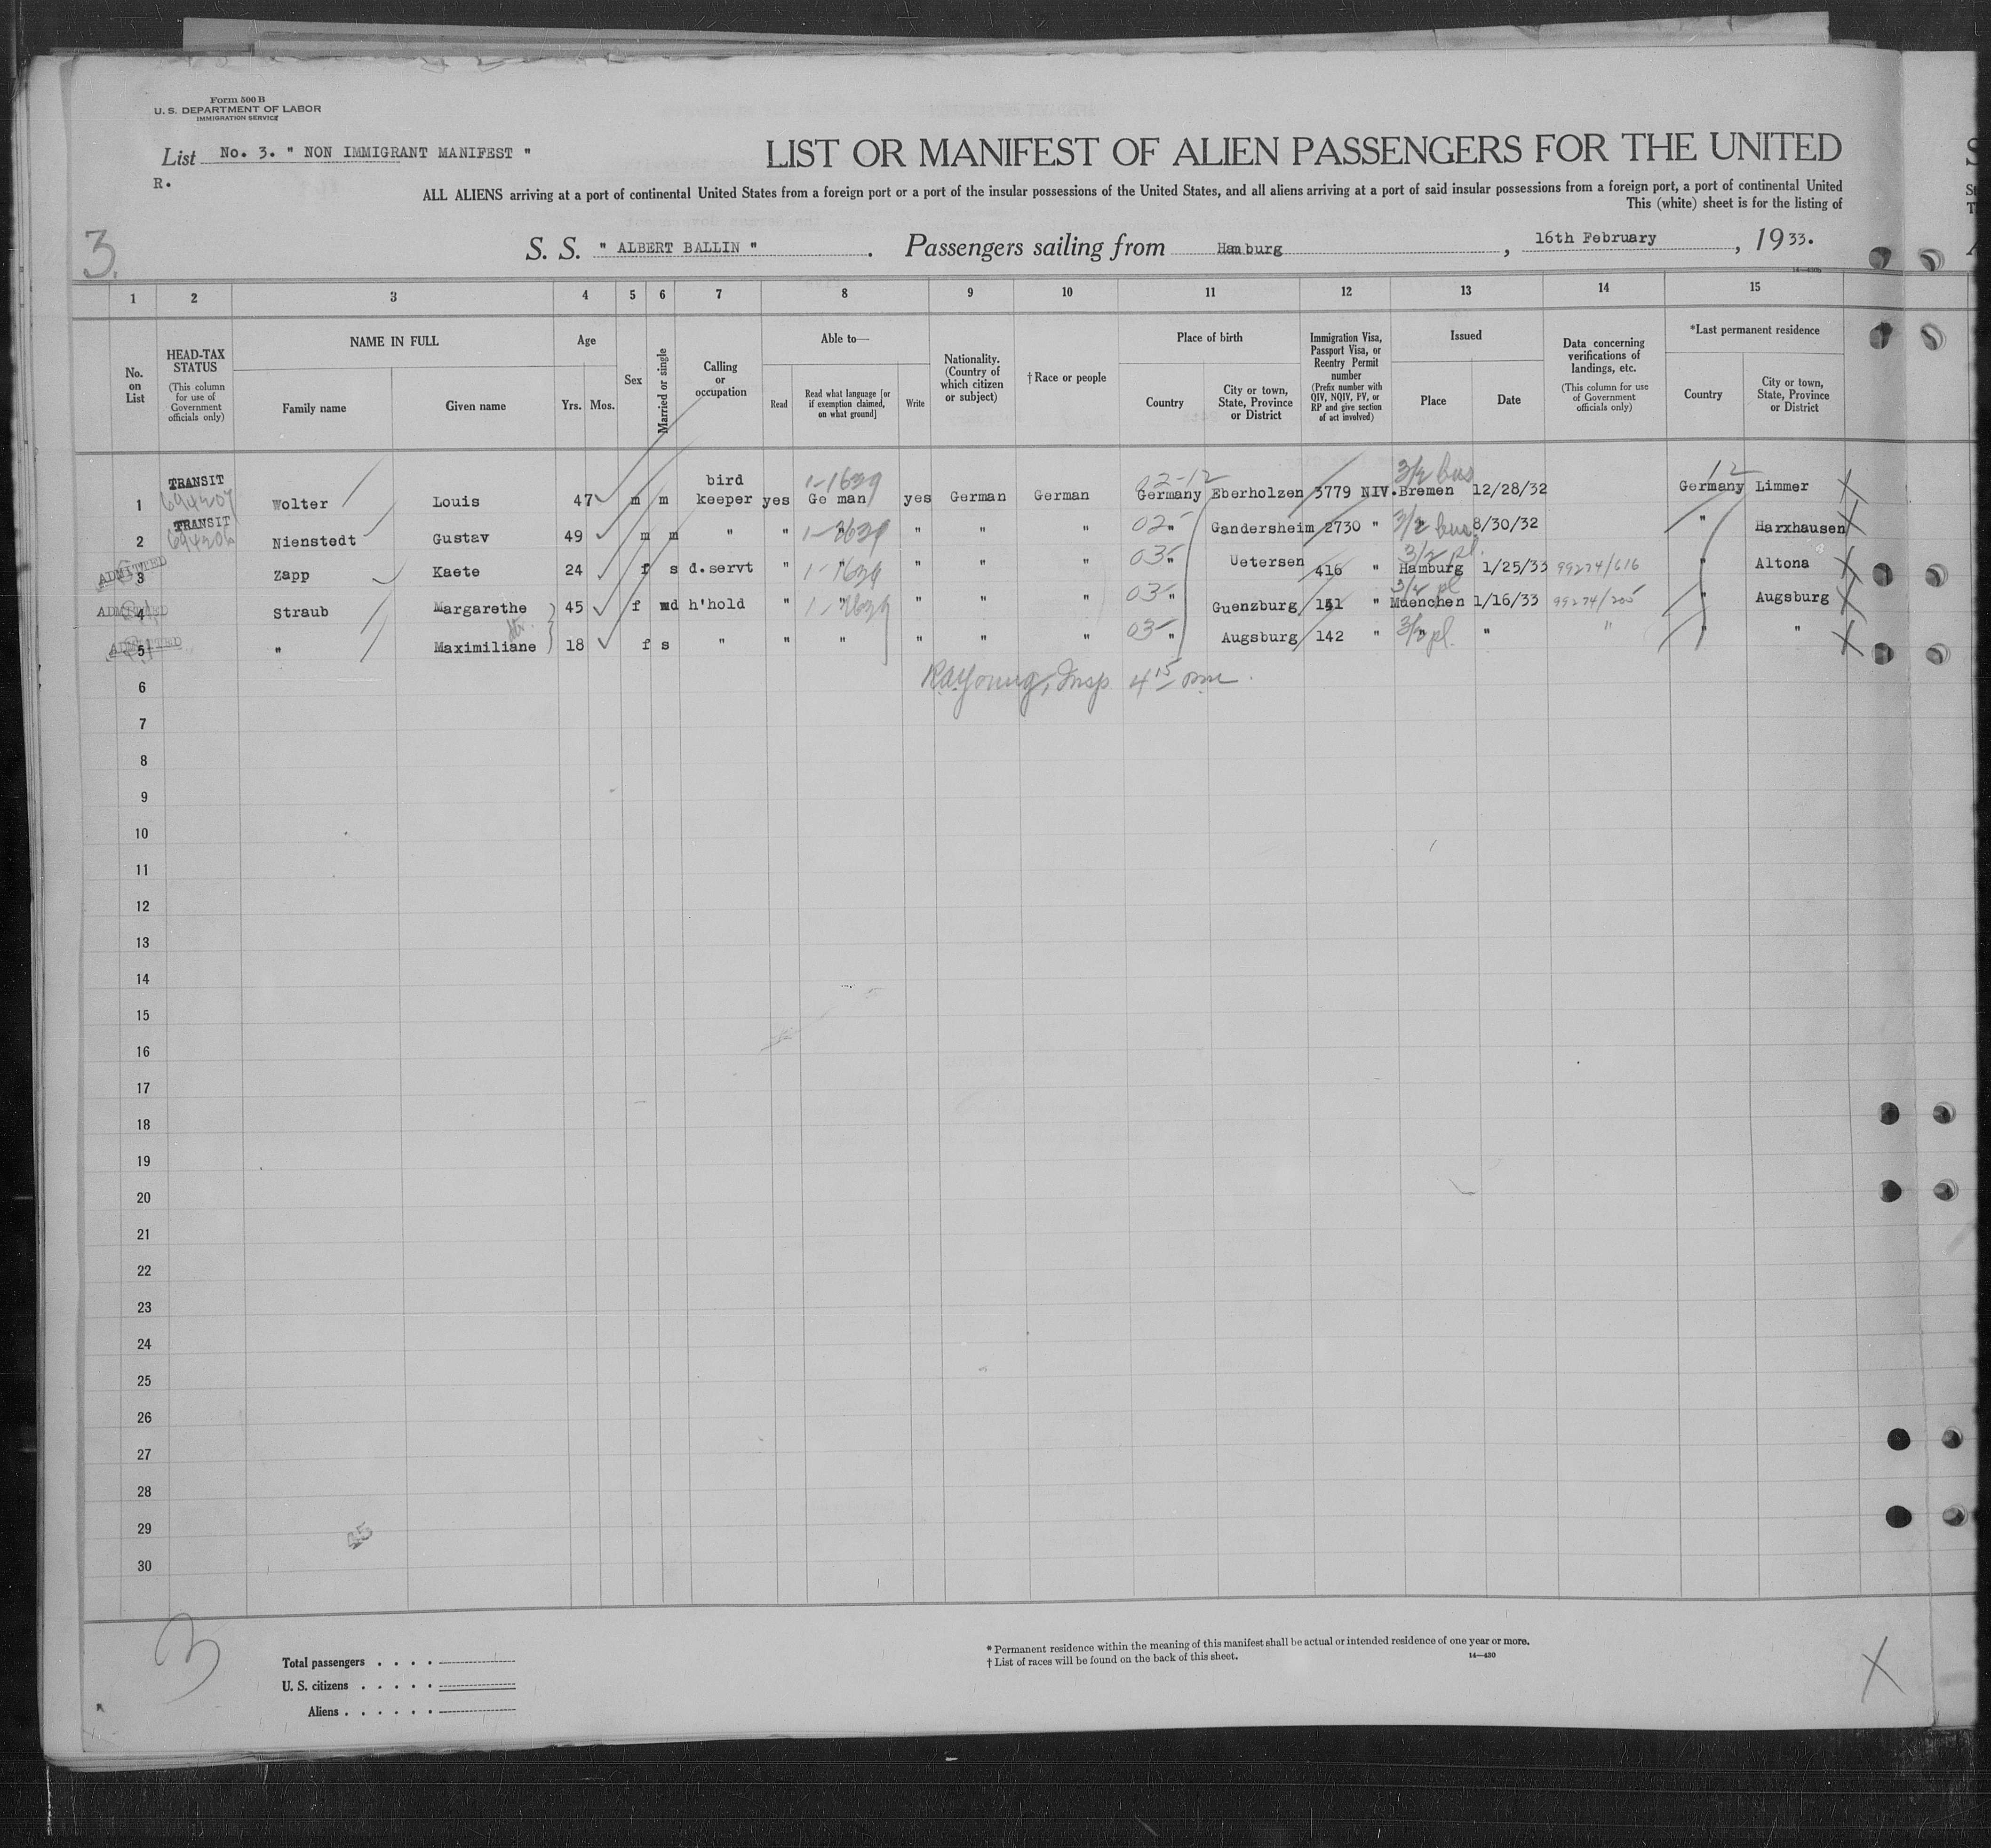 Form 500 B
U. S. DEPARTMENT OF LABOR
IMMIGRATION SERVICE
List No. 3. " NON IMMIGRANT MANIFEST "
R.
LIST OR MANIFEST OF ALIEN PASSENGERS FOR THE UNITED
ALL ALIENS arriving at a port of continental United States from a foreign port or a port of the insular possessions of the United States, and all aliens arriving at a port of said insular possessions from a foreign port, a port of continental United
This (white) sheet is for the listing of
3.
S. S. " ALBERT BALLIN " . Passengers sailing from Hamburg , 16th February , 1933.
14—430b
1 2 3 4 5 6 7 8 9 10 11 12 13 14 15
No. on List
HEAD-TAX STATUS (This column for use of Government officials only)
NAME IN FULL
Family name Given name
Age
Yrs. Mos.
Sex
Married or single
Calling or occupation
Able to—
Read
Read what language [or if exemption claimed, on what ground]
Write
Nationality. (Country of which citizen or subject)
†Race or people
Place of birth
Country
City or town, State, Province or District
Immigration Visa, Passport Visa, or Reentry Permit number (Prefix number with QIV, NQIV, PV, or RP and give section of act involved)
Issued
Place Date
Data concerning verifications of landings, etc. (This column for use of Government officials only)
*Last permanent residence
Country
City or town, State, Province or District
TRANSIT 02-12 3/2 bus 12
1 694207 Wolter Louis 47 m m bird keeper yes Ge man 1-1639 yes German German Germany Eberholzen 3779 NIV. Bremen 12/28/32 Germany Limmer X
TRANSIT
2 694206 Nienstedt Gustav 49 m m " " " " " " 02 " Gandersheim 2730 " " 3/2 bus 8/30/32 " Harxhausen X
ADMITTED
3 Zapp Kaete 24 f s d.servt " " 1-1639 " " " 03 " Uetersen 416 " Hamburg 3/2 pl. 1/25/33 99274/616 " Altona X
ADMITTED
4 Straub Margarethe 45 f wd h'hold " " " " " 03 " Guenzburg 141 " Muenchen 3/2 pl 1/16/33 99274/205 " Augsburg X
ADMITTED
5 " Maximiliane 18 f s " " " " " " 03 " Augsburg 142 " " 3/2 pl. " " " " X
6 R.A. Young, Insp. 4 15 pm.
7
8
9
10
11
12
13
14
15
16
17
18
19
20
21
22
23
24
25
26
27
28
29
30
3
Total passengers . . . .
U. S. citizens . . . . .
Aliens . . . . . .
* Permanent residence within the meaning of this manifest shall be actual or intended residence of one year or more.
† List of races will be found on the back of this sheet.
14—430
X